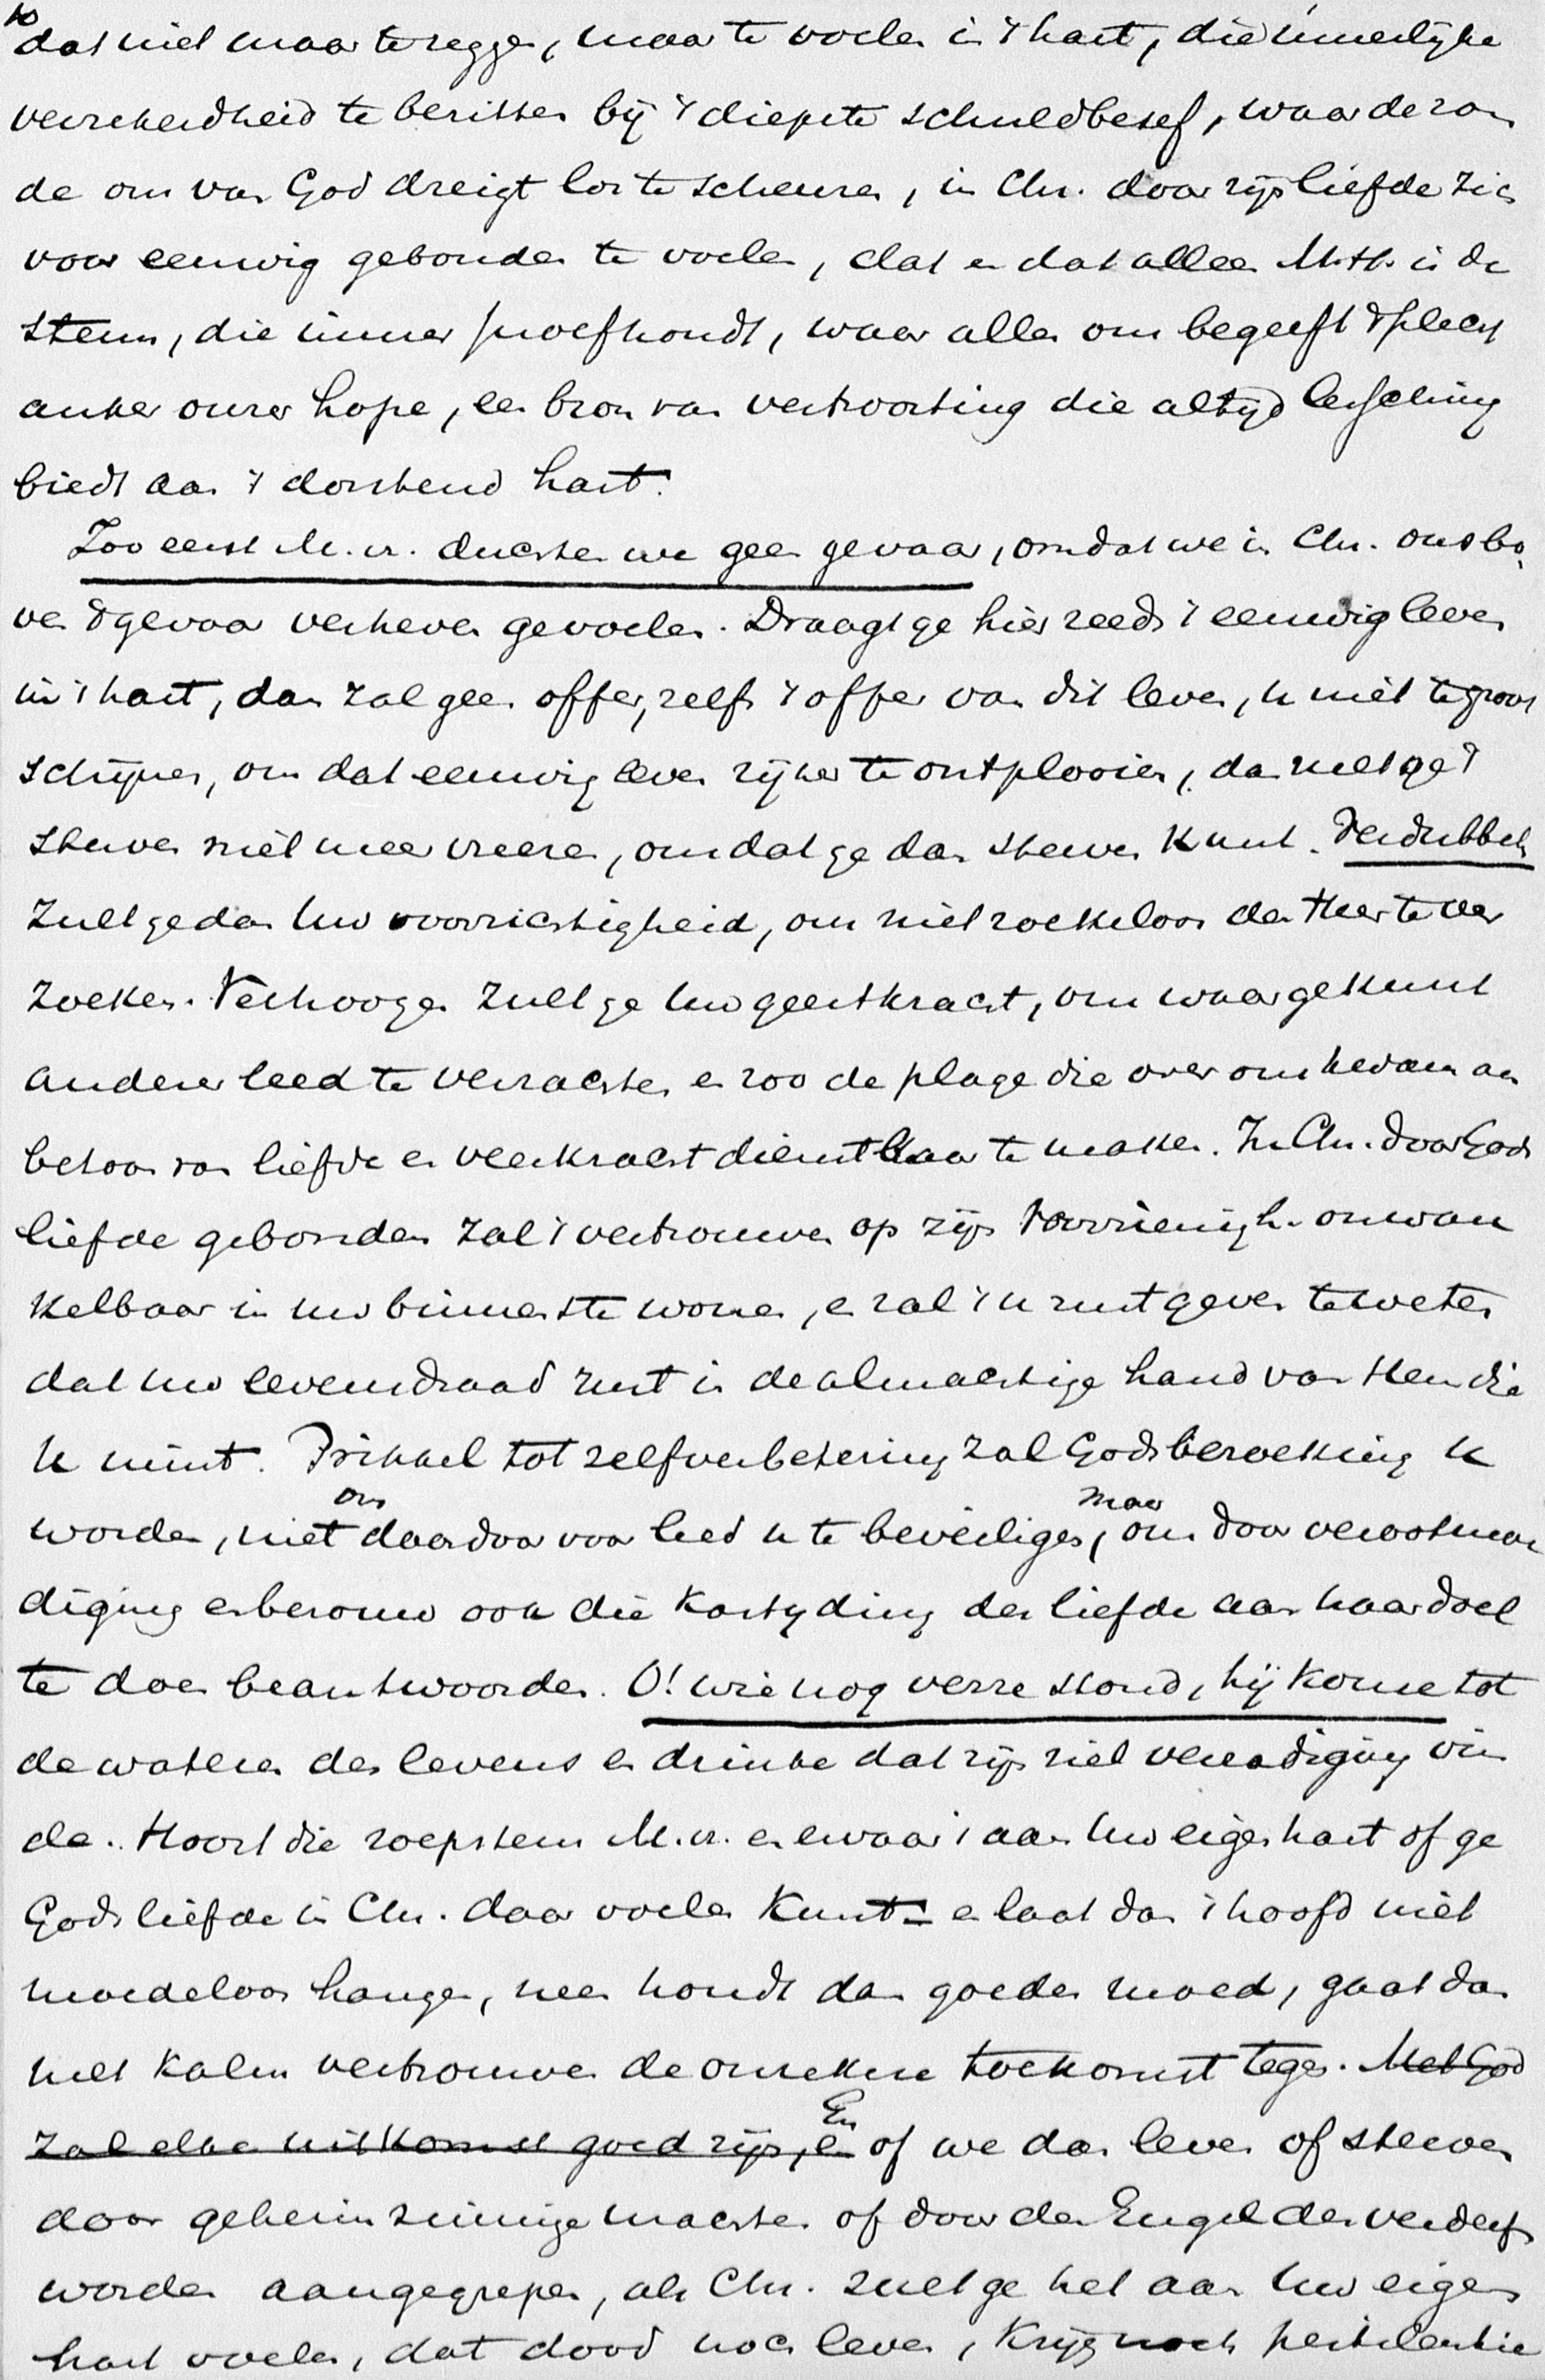 10
dat niet maar te zeggen, maar te voelen in 't hart, die innerlijke
verzekerdheid te bezitten bij 't diepste schuldbesef, waar de zon
de ons van God dreigt los te scheuren, in Chr. door zijn liefde zich
voor eeuwig gebonden te voelen, dat en dat alleen M.H. is de
steun, die immer proefhoudt, waar alles ons begeeft d' plecht
anker onzer hope, een bron van vertroosting die altijd lessching
biedt aan 't dorstend hart.
Zoo eerst M.v. duchten we geen gevaar, omdat we in Chr. ons bo
ven 't gevaar verheven gevoelen. Draagt ge hier reeds 't eeuwig leven
in 't hart, dan zal geen offer, zelfs 't offer van dit leven, u niet te groot
schijnen, om dat eeuwig leven rijker te ontplooien, dan zult ge 't
sterven niet meer vreezen, omdat ge dan sterven kunt. Verdubbelen
zult ge dan Uw voorzichtigheid, om niet roekeloos den Heer te ver
zoeken. Verhoogen zult ge Uw geestkracht, om waar ge kunt
anderer leed te verzachten en zoo de plage die over ons kwam aan
betoon van liefde en veerkracht dienstbaar te maken. In Chr. door Gods
liefde gebonden zal 't vertrouwen op zijn voorzienigh. onwan
kelbaar in uw binnenste wonen, en zal 't u rust geven te weten
dat uw levensdraad rust in de almachtige hand van Hem die
U mint. Prikkel tot zelfverbetering zal Gods bezoeking U
worden, niet om daardoor voor leed u te beveiligen, maar om door verootmoe
diging en berouw ook die kastijding der liefde aan haar doel
te doen beantwoorden. O! wie nog verre stond, hij kome tot
de wateren des levens en drinke dat zijn ziel verzadiging vin
de. Hoort die roepstem M.v. en ervaar 't aan Uw eigen hart of ge
Gods liefde in Chr. daar voelen kunt – en laat dan 't hoofd niet
moedeloos hangen, neen houdt dan goeden moed, gaat dan
met kalm vertrouwen de onzekere toekomst tegen. Met God
zal elke uitkomst goed zijn, en En of we dan leven of sterven
door geheimzinnige machten of door den Engel des verderfs
worden aangegrepen, als Chr. zult ge het aan Uw eigen
hart voelen, dat dood noch leven, krijg noch pestilentie